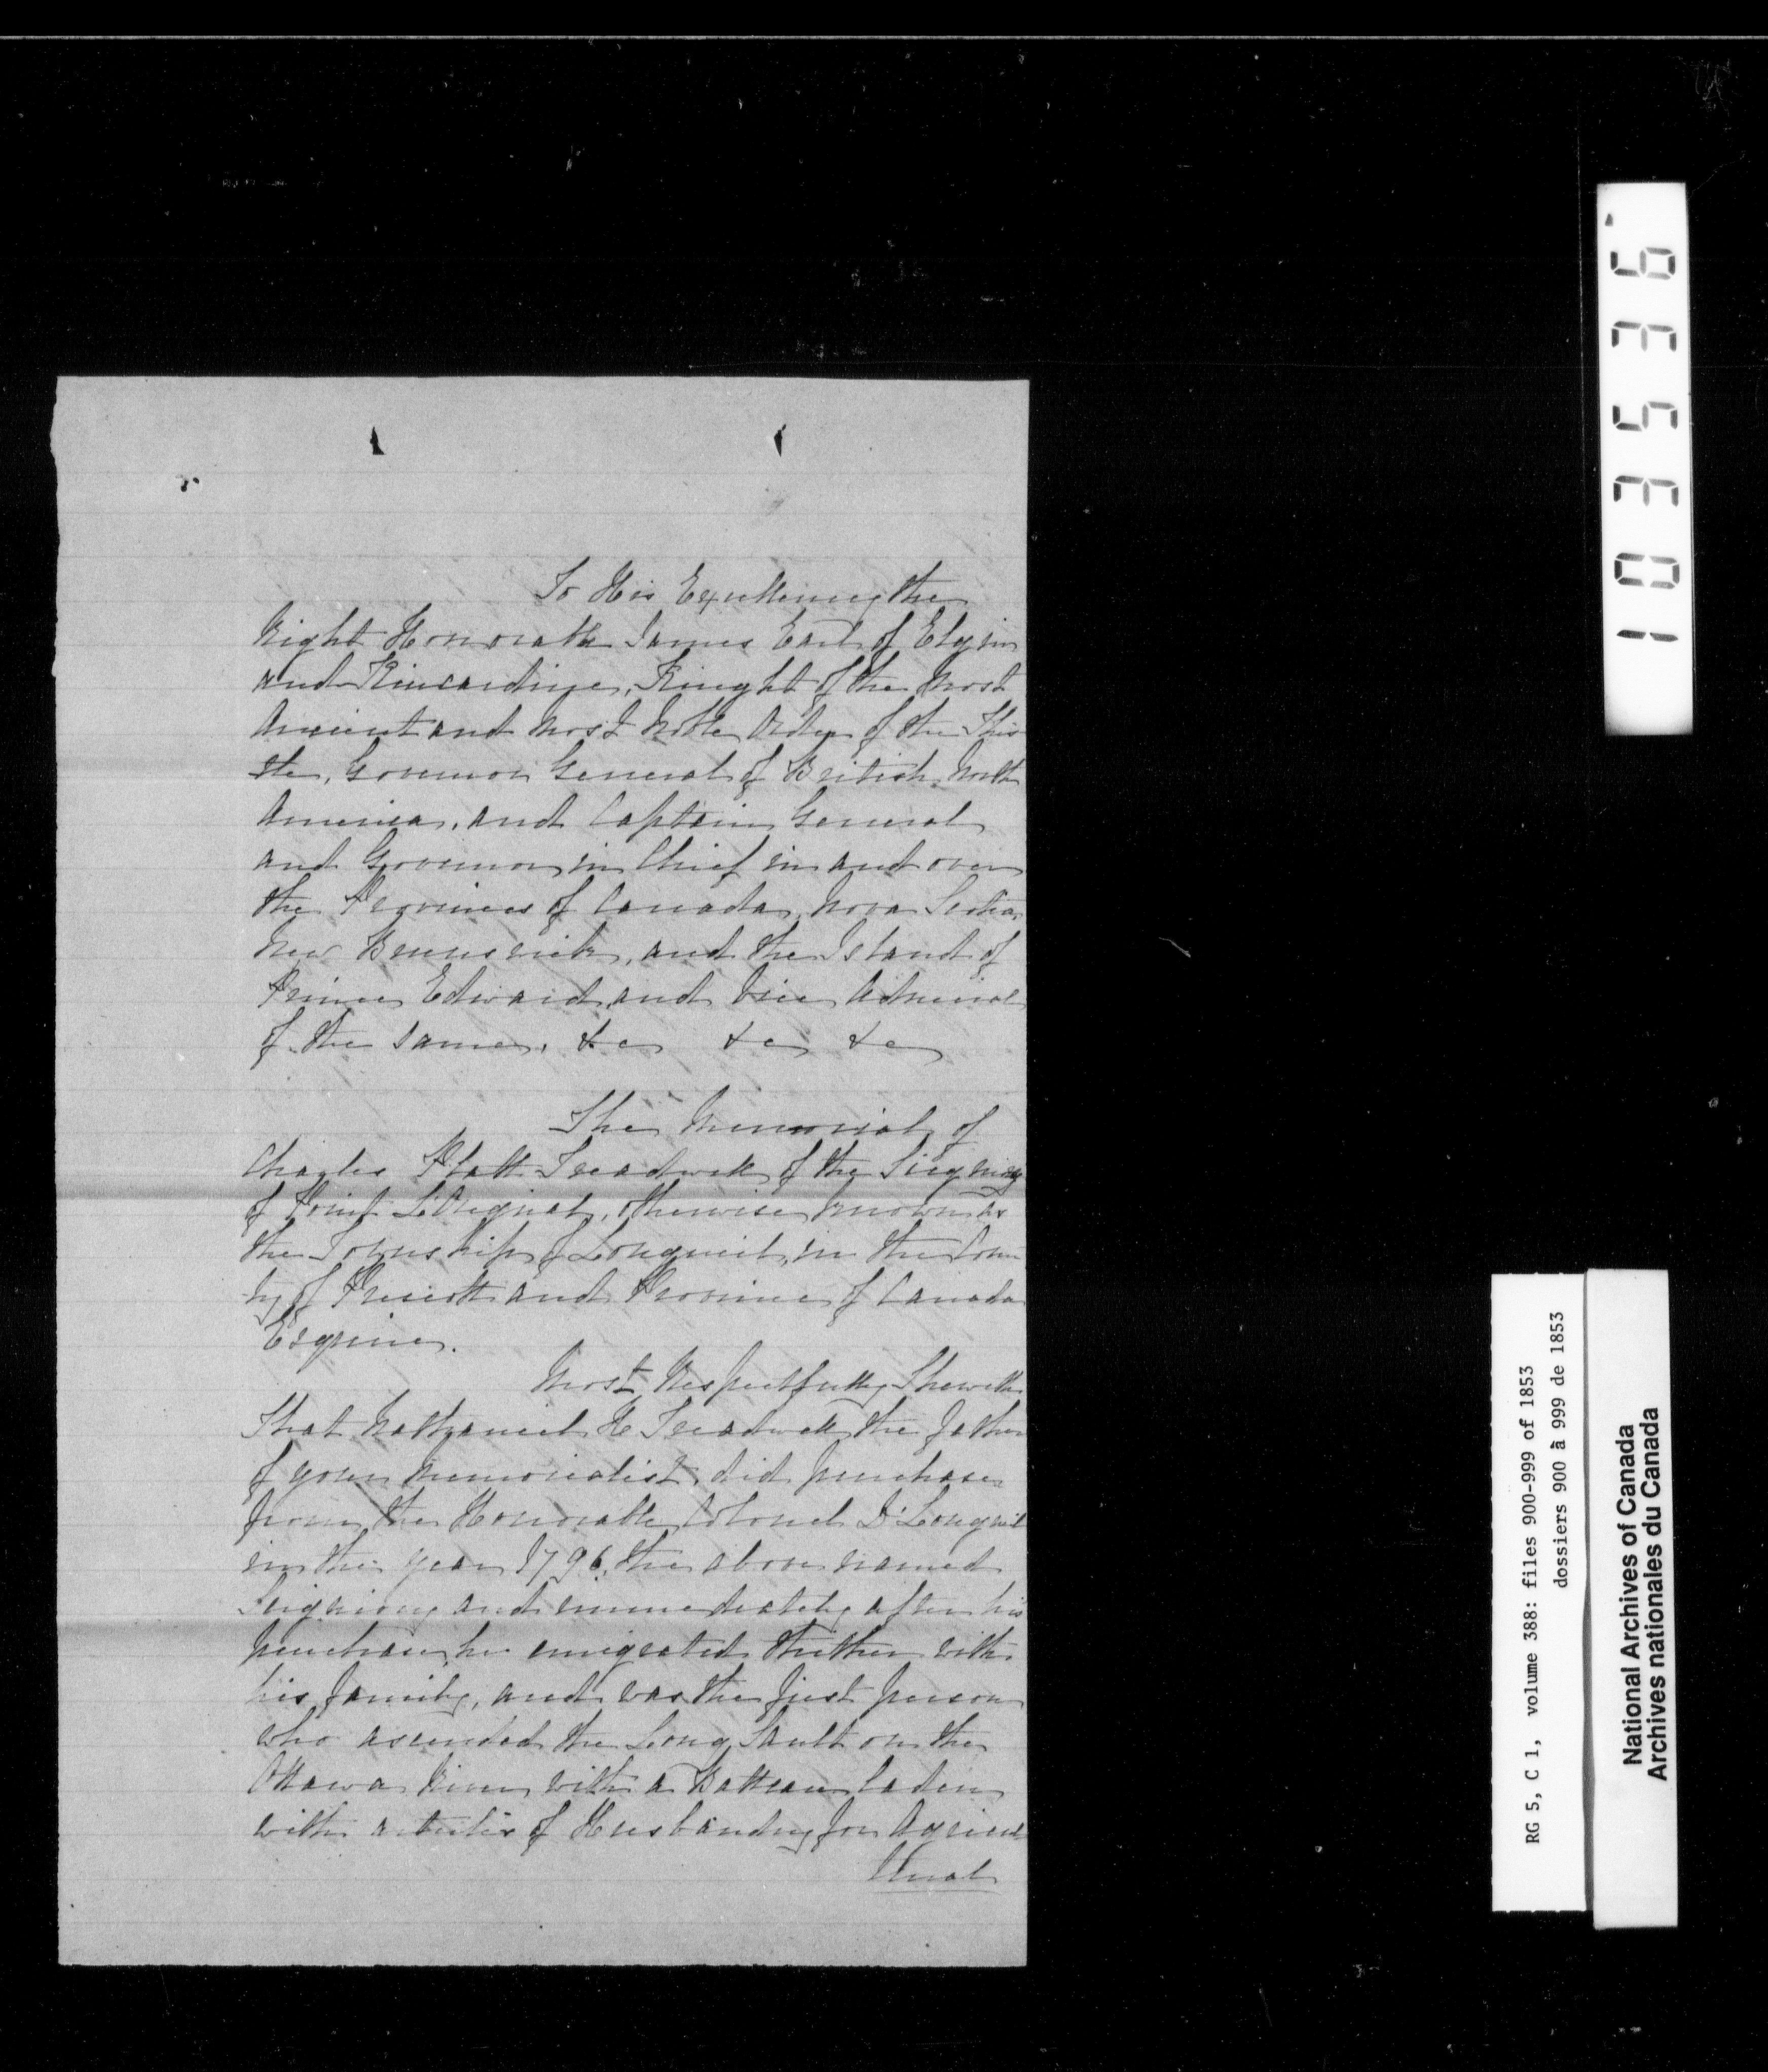 To His Excellency the
Right Honorable James Earl of Elgin
and Kincardine, Knight of the most
Ancient and most Noble Order of the This-
tle, Governor General of British North
America, and Captain General
and Governor in Chief in and over
the Provinces of Canada, Nova Scotia,
New Brunswick, and the Island of
Prince Edward and Vice Admiral
of the same, &c &c &c
The Memorial of
Charles Platt Treadwell of the Seigniory
of Point L'Orignal, otherwise known as
the Township of Longueil, in the Coun-
ty of Prescott and Province of Canada
Esquire.
Most Respectfully Sheweth
That Nathaniel H Treadwell the father
of your Memorialist, did purchase
from the Honorable Colonel D'Longueil
in the year 1796, the above named
Seigniory and immediately after his
purchase, he emigrated thither with
his family, and was the first person
who ascended the Long Sault on the
Ottawa River with a Batteau laden
with articles of Husbandry for Agricul
tural
103536
RG 5, C 1, volume 388: files 900-999 of 1853
dossiers 900 à 999 de 1853
National Archives of Canada
Archives nationales du Canada